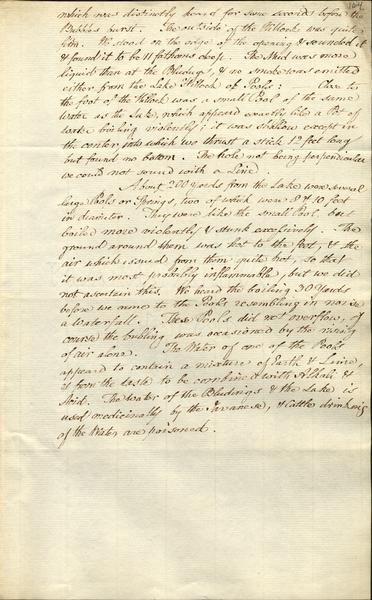 164
which was distinctly heard for some seconds before the
Bubbles burst. The outside of the Hillock was quite
We stood on the edge of the opening & sounded it
& found it to be 11 fathoms deep. The Mud was more
liquid than at the Bludugs, & no smoke was emitted
either from the Lake, Hillock or Pools: Close to
the foot of the Hillock was a small Pool of the same
Water as the Lake, which appeared exactly like a Pot of
Water boiling violently; it was shallow except in
the center, into which we thrust a stick 12 feet long
but found no bottom. The hole not being perpendicular
we could not sound with a Line.
About 200 yards from the Lake were several
large Pools or Springs, two of which were 8 & 10 feet
in diameter. They were like the small Pool, but
boiled more violently & stunk excessively. The
ground around them was hot to the feet, & the
air which issued from them quite hot, so that
it was most probably inflammable, but we did
not ascertain this. We heard the boiling 30 Yards
before we came to the Pools resembling in noise
a Waterfall. These Pools did not overflow, of
course the bubbling was occasioned by the rising
of air alone. The Water of one of the Pools
appeared to contain a mixture of Earth & Lime,
& from the taste to be combined with Alkali &
Acid. The Water of the Bludugs & the Lake is
used medicinally by the Javanese, & Cattle drinking
of the Water are poisoned.